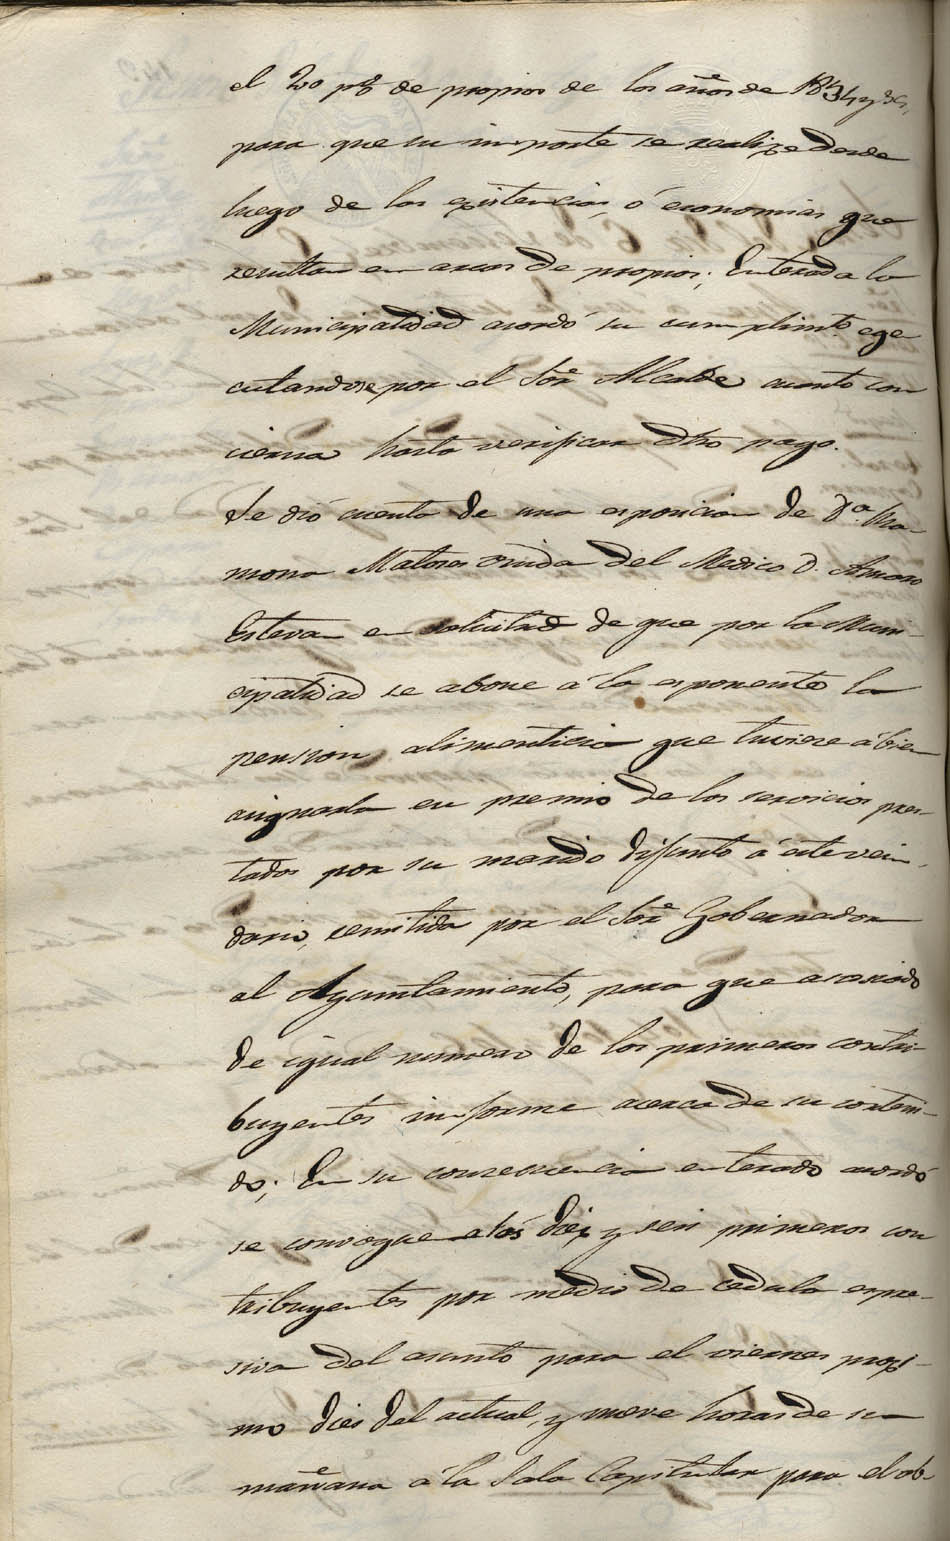 el 20 p% de propios de los años de 1834 y 35,
para que su importe se realize desde
luego de las existencias, ó economias que
resultan en arcas de propios; Enterada la
Municipalidad acordó su cumplimto. ege
cutandose por el Sor. Alcalde cuanto con
cierna hasta verificar dho pago.
Se dió cuenta de una esposicion de Da. Ra-
mona Matores viuda del Medico D. Amaro
Estevan en solicitud de que por la Muni-
cipalidad se abone á la esponente la
pension alimenticia que tuviere á bien
asignarla en premio de los servicios pres-
tados por su marido difunto á este vecin-
dario, remitida por el Sor. Gobernador
al Ayuntamiento, para que asociado
de igual numero de los primeros contri-
buyentes informe acerca de su conteni-
do; En su consecuencia enterado acordó
se convoque a los diez y seis primeros con
tribuyentes por medio de cedula espre-
siva del asunto para el viernes proxi-
mo dies del actual, y nueve horas de su
mañana á la Sala Capitular para el ob-